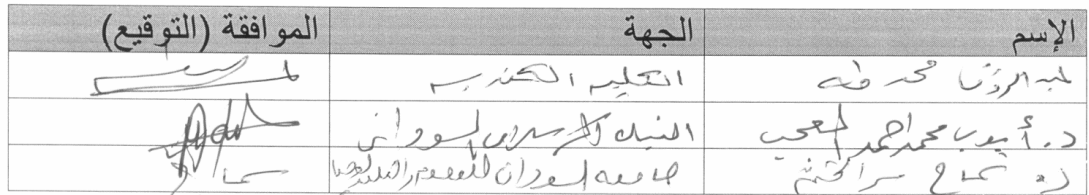 الإسم الجهة الموافقة (التوقيع)
عبد الرؤوف محمد طه الكلية
د. أيوب محمد احمد العجب البنك الإسلامي السوداني
د. سر الختم جامعة السودان للعلوم والتكنولوجيا